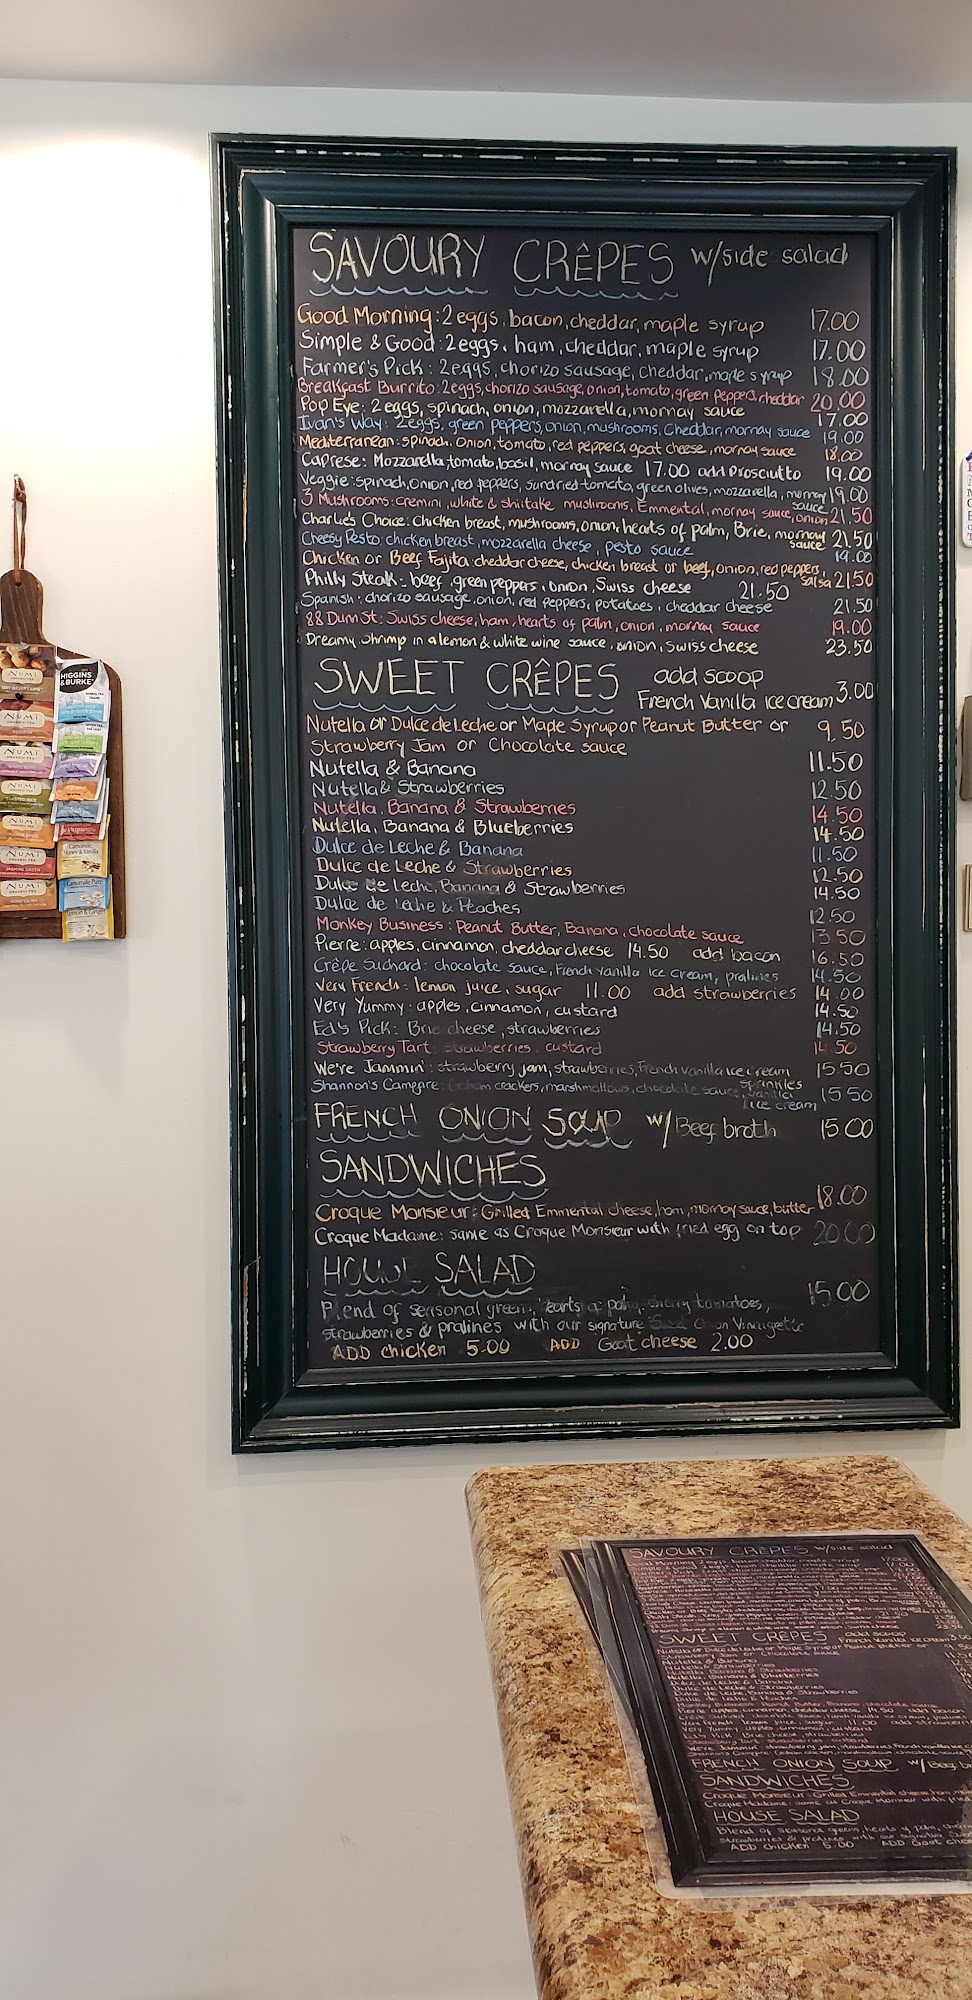 SAVOURY CRÊPES w/side salad
Good Morning: 2 eggs, bacon, cheddar, maple syrup 17.00
Simple & Good: 2 eggs, ham, cheddar, maple syrup 17.00
Farmer's Pick: 2 eggs, chorizo sausage, cheddar, maple syrup 18.00
Breakfast Burrito: 2 eggs, chorizo sausage, onion, tomato, green peppers, cheddar 20.00
Pop Eye: 2 eggs, spinach, onion, mozzarella, mornay sauce 17.00
Ivan's Way: 2 eggs, green peppers, onion, mushrooms, Cheddar, mornay sauce 19.00
Mediterranean: spinach, onion, tomato, red peppers, goat cheese, mornay sauce 18.00
Caprese: Mozzarella, tomato, basil, mornay sauce 17.00 add Prosciutto 19.00
Veggie: spinach, onion, red peppers, sundried tomato, green olives, mozzarella, mornay sauce 19.00
3 Mushrooms: cremini, white & shiitake mushrooms, Emmental, mornay sauce, onion 21.50
Charlie's Choice: chicken breast, mushrooms, onion, hearts of palm, Brie, mornay sauce 21.50
Cheesy Pesto chicken breast, mozzarella cheese, pesto sauce 19.00
Chicken or Beef Fajita cheddar cheese, chicken breast or beef, onion, red peppers, salsa 21.50
Philly Steak: beef, green peppers, onion, Swiss cheese 21.50
Spanish: chorizo sausage, onion, red peppers, potatoes, cheddar cheese 21.50
88 Dunn St: Swiss cheese, ham, hearts of palm, onion, mornay sauce 19.00
Dreamy Shrimp in a lemon & white wine sauce, onion, Swiss cheese 23.50
SWEET CRÊPES add scoop
French Vanilla ice cream 3.00
Nutella or Dulce de Leche or Maple Syrup or Peanut Butter or 9.50
Strawberry Jam or Chocolate sauce
Nutella & Banana 11.50
Nutella & Strawberries 12.50
Nutella, Banana & Strawberries 14.50
Nutella, Banana & Blueberries 14.50
Dulce de Leche & Banana 11.50
Dulce de Leche & Strawberries 12.50
Dulce de Leche, Banana & Strawberries 14.50
Dulce de Leche & Peaches 12.50
Monkey Business: Peanut Butter, Banana, chocolate sauce 13.50
Pierre: apples, cinnamon, cheddar cheese 14.50 add bacon 16.50
Crêpe Suchard: chocolate sauce, French vanilla ice cream, pralines 14.50
Very French: lemon juice, sugar 11.00 add strawberries 14.00
Very Yummy: apples, cinnamon, custard 14.50
Ed's Pick: Brie cheese, strawberries 14.50
Strawberry Tart: strawberries, custard 14.50
We're Jammin': strawberry jam, strawberries, French vanilla ice cream 15.50
Shannon's Campfire: Graham crackers, marshmallows, chocolate sauce, sprinkles vanilla ice cream 15.50
FRENCH ONION SOUP w/Beef broth 15.00
SANDWICHES
Croque Monsieur: Grilled Emmental cheese, ham, mornay sauce, butter 18.00
Croque Madame: same as Croque Monsieur with fried egg on top 20.00
HOUSE SALAD
Blend of seasonal greens, hearts of palm, cherry tomatoes, 15.00
strawberries & pralines with our signature Sweet Onion Vinaigrette
ADD chicken 5.00 ADD Goat cheese 2.00
NUMI
NUMI
NUMI
NUMI
NUMI
NUMI
NUMI
HIGGINS
&BURKE
Camomile,
Honey & Vanilla
Camomile Pure
Lemon & Ginger
SAVOURY CRÊPES w/side salad
SWEET CRÊPES add scoop
French Vanilla ice cream 3.00
Nutella & Banana
Nutella & Strawberries
Nutella, Banana & Strawberries
Nutella, Banana & Blueberries
FRENCH ONION SOUP w/Beef
SANDWICHES
HOUSE SALAD
ADD chicken 5.00 ADD Goat